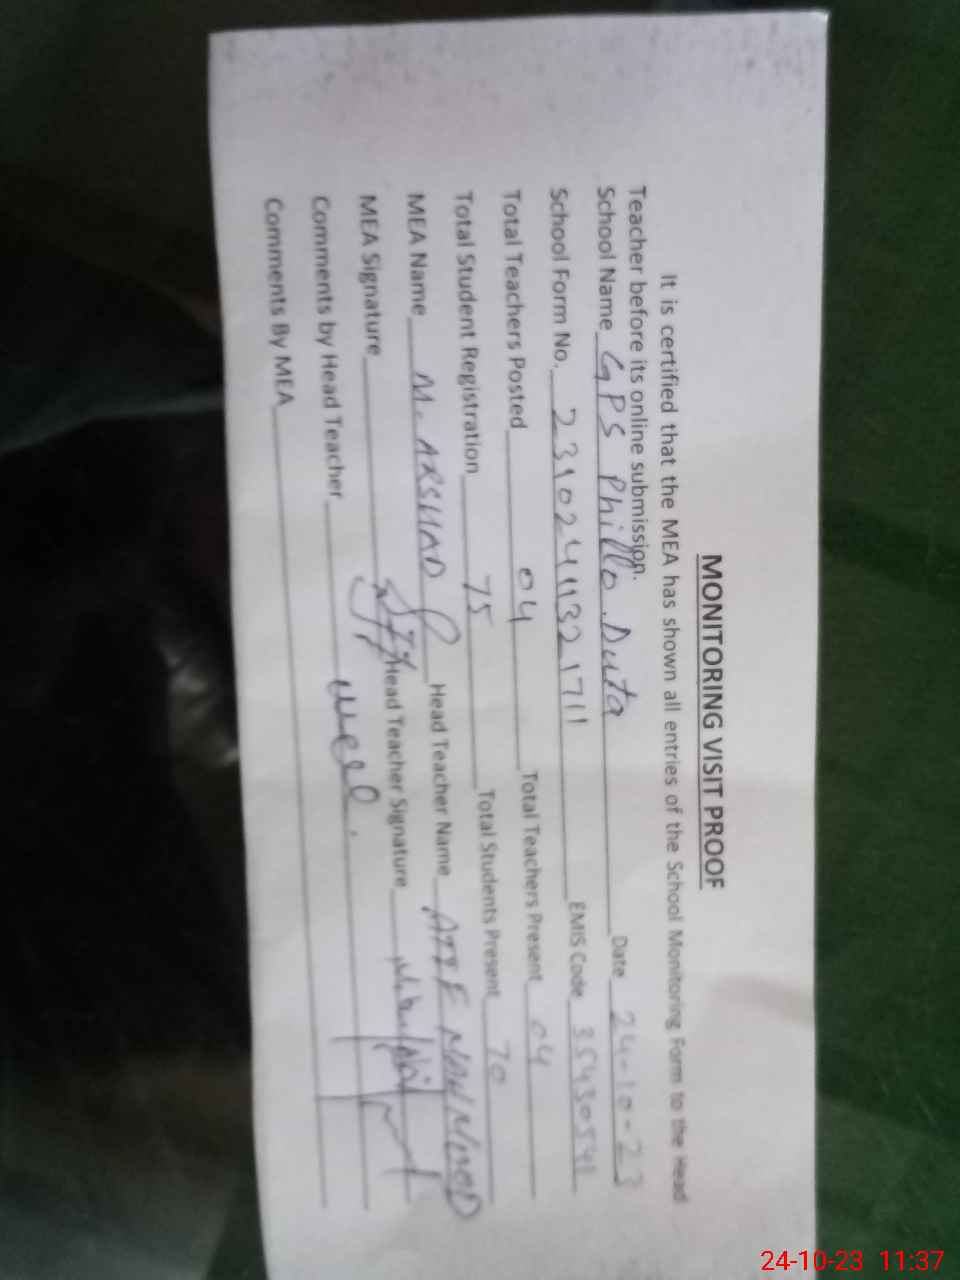 MONITORING VISIT PROOF
It is certified that the MEA has shown all entries of the School Monitoring Form to the Head
Teacher before its online submission.
School Name GPS Phillo Duta Date 24-10-23
School Form No. EMIS Code 35430541
Total Teachers Posted 04 Total Teachers Present 04
Total Student Registration 75 Total Students Present 70
MEA Name M. ARSHAD Head Teacher Name
MEA Signature Head Teacher Signature
Comments by Head Teacher well.
Comments By MEA
24-10-23 11:37